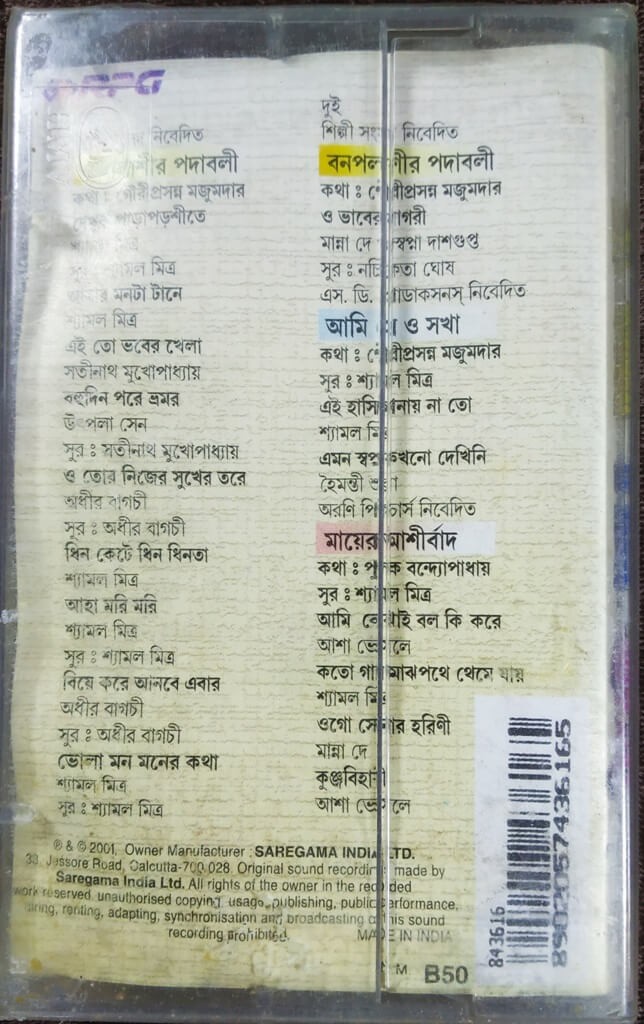 RPG
নিবেদিত
পদাবলী
কথা : গৌরীপ্রসন্ন মজুমদার
পাড়াপড়শীতে
মিত্র
সুর : শ্যামল মিত্র
আমার মনটা টানে
শ্যামল মিত্র
এই তো ভবের খেলা
সতীনাথ মুখোপাধ্যায়
বহুদিন পরে ভ্রমর
উৎপলা সেন
সুর : সতীনাথ মুখোপাধ্যায়
ও তোর নিজের সুখের তরে
অধীর বাগচী
সুর : অধীর বাগচী
ধিন কেটে ধিন ধিনতা
শ্যামল মিত্র
আহা মরি মরি
শ্যামল মিত্র
সুর : শ্যামল মিত্র
বিয়ে করে আনবে এবার
অধীর বাগচী
সুর : অধীর বাগচী
ভোলা মন মনের কথা
শ্যামল মিত্র
সুর : শ্যামল মিত্র
দুই
শিল্পী সংসদ নিবেদিত
বনপলাশীর পদাবলী
কথা : গৌরীপ্রসন্ন মজুমদার
ও ভাবের নাগরী
মান্না দে স্বপ্না দাশগুপ্ত
সুর : নচিকেতা ঘোষ
এস. ডি. প্রোডাকসনস্ নিবেদিত
আমি সে ও সখা
কথা : গৌরীপ্রসন্ন মজুমদার
সুর : শ্যামল মিত্র
এই হাসি মানায় না তো
শ্যামল মিত্র
এমন স্বপ্ন কখনো দেখিনি
হৈমন্তী শুক্লা
অরণি পিকচার্স নিবেদিত
মায়ের আশীর্বাদ
কথা : পুলক বন্দ্যোপাধ্যায়
সুর : শ্যামল মিত্র
আমি বোঝাই বল কি করে
আশা ভোঁসলে
কতো গান মাঝপথে থেমে যায়
শ্যামল মিত্র
ওগো সোনার হরিণী
মান্না দে
কুঞ্জবিহারী
আশা ভোঁসলে
℗ & © 2001, Owner Manufacturer : SAREGAMA INDIA LTD.
33, Jessore Road, Calcutta-700 028. Original sound recording made by
Saregama India Ltd. All rights of the owner in the recorded
work reserved. unauthorised copying, usage, publishing, public performance,
hiring, renting, adapting, synchronisation and broadcasting of this sound
recording prohibited. MADE IN INDIA
M B50
843616
8902057436165